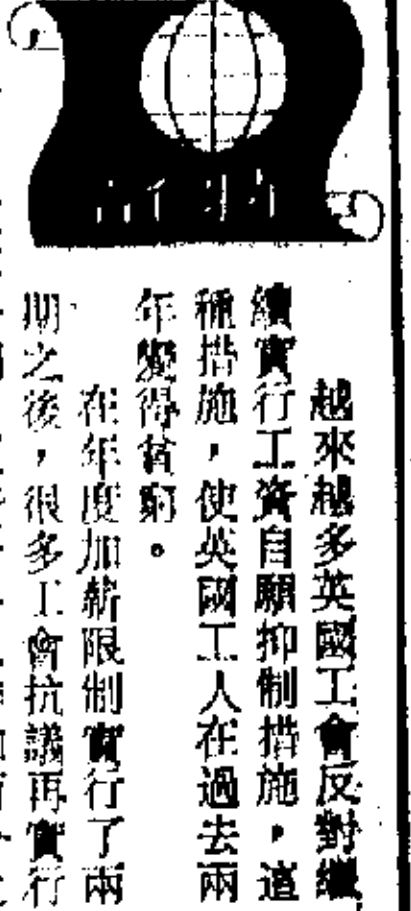 越來越多英國工會反對繼
續實行工資自願抑制措施，這
種措施，使英國工人在過去兩
年變得貧窮。
在年度加薪限制實行了兩
期之後，很多工會抗議再實行